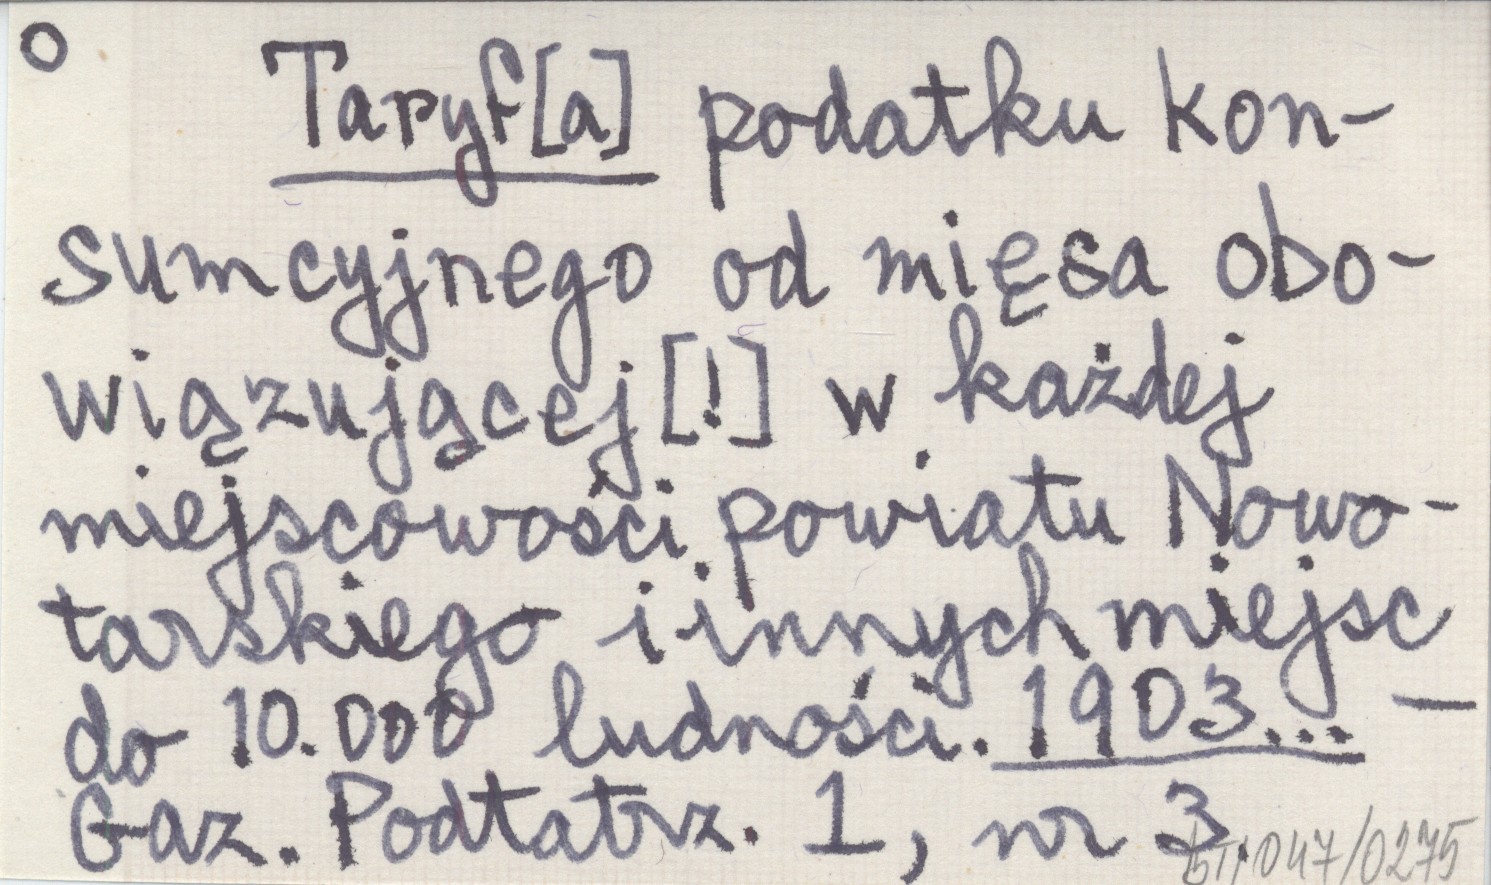 O
Taryf[a] podatku kon-
sumcyjnego od mięsa obo-
wiązującej [!] w każdej
miejscowości powiatu Nowo-
tarskiego i innych miejsc
do 10.000 ludności. 1903... —
Gaz. Podtatrz. 1, nr 3.
BT/047/0275